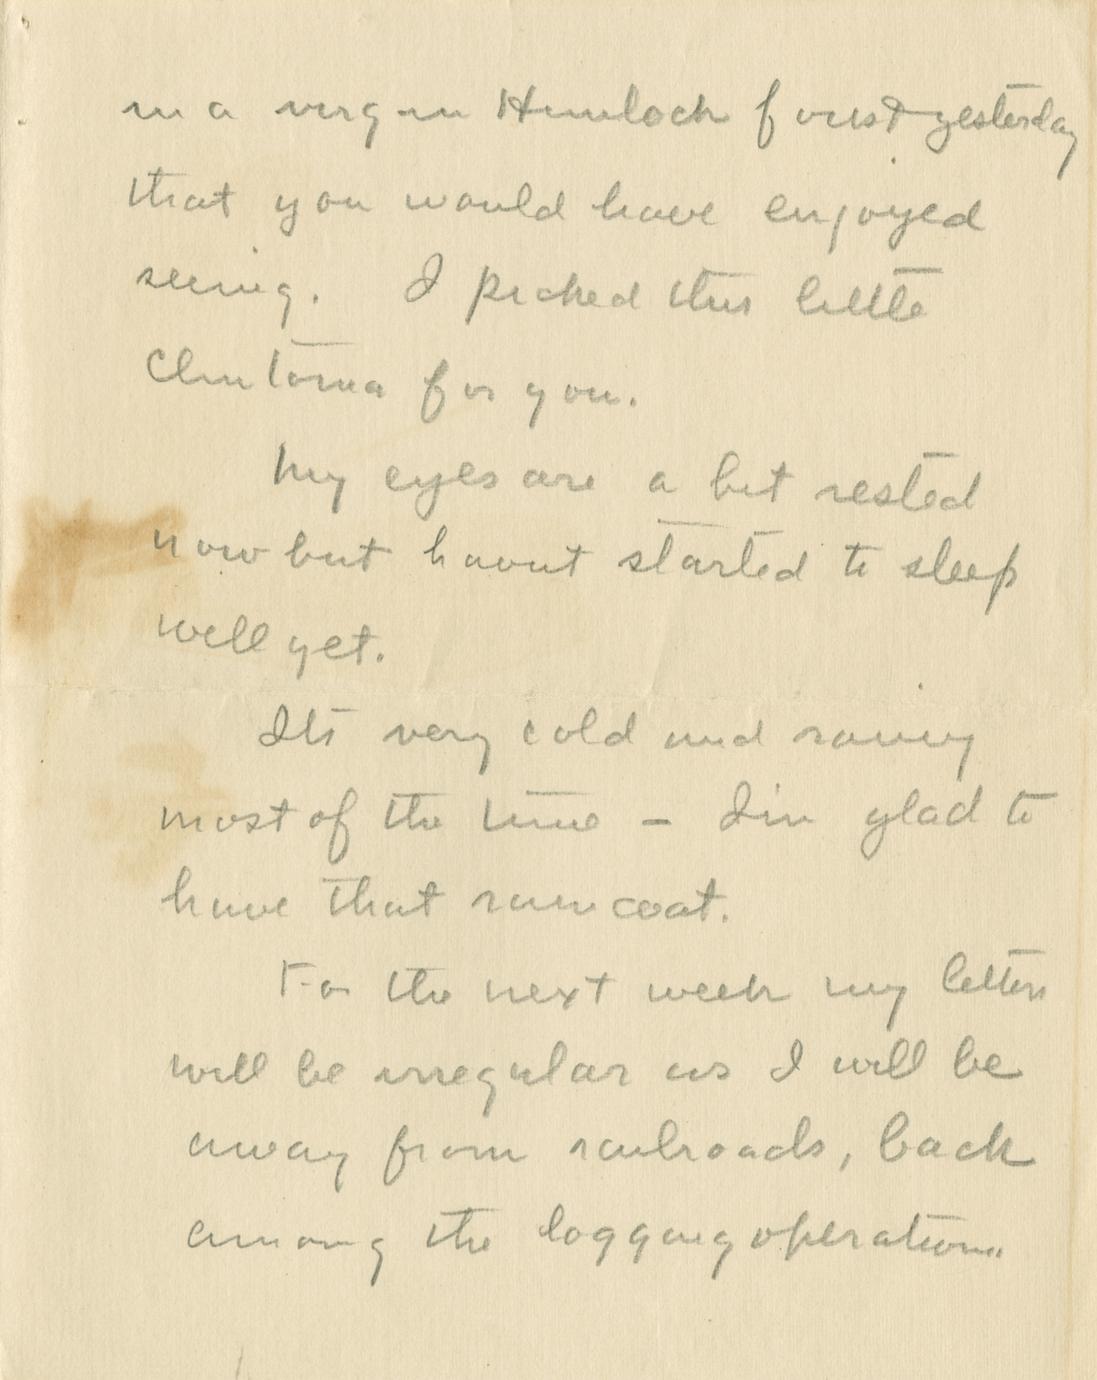 in a virgin Hemlock forest yesterday
that you would have enjoyed
seeing. I picked this little
Clintonia for you.
My eyes are a bit rested
now but havnt started to sleep
well yet.
Its very cold and rainy
most of the time - I'm glad to
have that raincoat.
For the next week my letters
will be irregular as I will be
away from railroads, back
among the logging operations